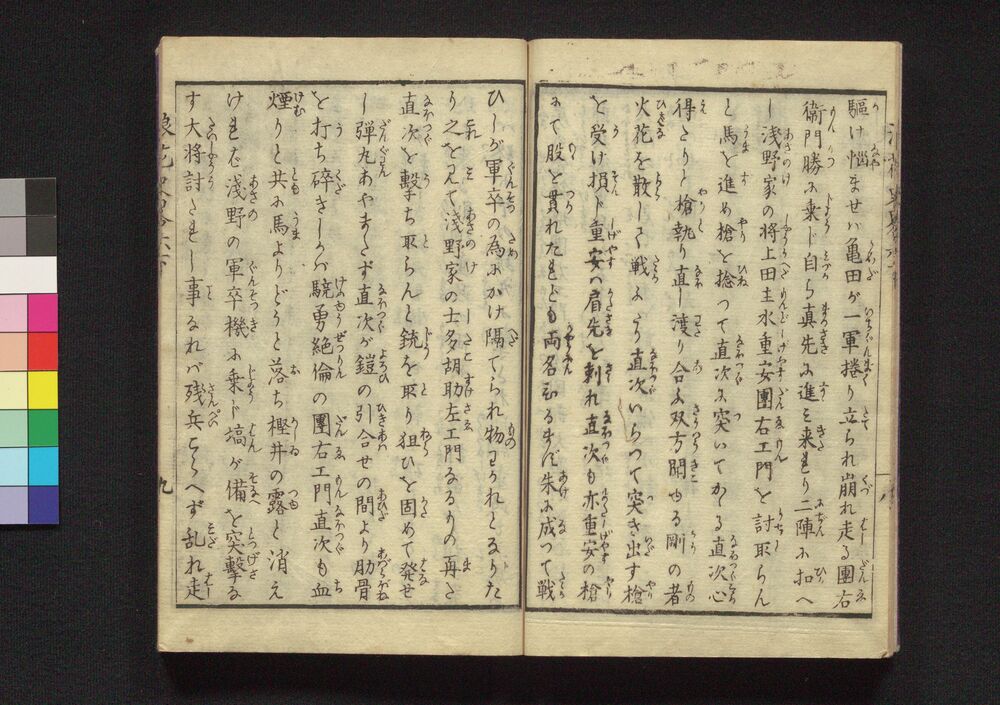 驅け惱ませバ亀田が一軍捲り立られ崩れ走る團右
衛門勝に乗じ自ら真先に進ミ来れり二陣に扣へ
し浅野家の将上田主水重安團右エ門を討取らん
と馬を進め槍を捻つて直次に突いてかゝる直次心
得たりと槍執り直し渡り合ふ双方聞ゆる剛の者
火花を散して戦ふたり直次いらつて突き出す槍
を受け損じ重安ハ肩先を刺れ直次も亦重安の槍
にて股を貫れたれども両名ひるまず朱に成つて戦
ひしが軍卒の為にかけ隔てられ物わかれとなりた
り之を見て浅野家の士多胡助左エ門なるもの再び
直次を擊ち取らんと銃を取り狙ひを固めて発せ
し弾丸あやまたず直次が鎧の引合せの間より肋骨
を打ち碎きしかバ驍勇絶倫の團右エ門直次も血
煙りと共に馬よりどうと落ち樫井の露と消え
けれバ浅野の軍卒機に乗じ塙が備を突擊な
す大将討たれし事なれバ残兵こらへず乱れ走
九